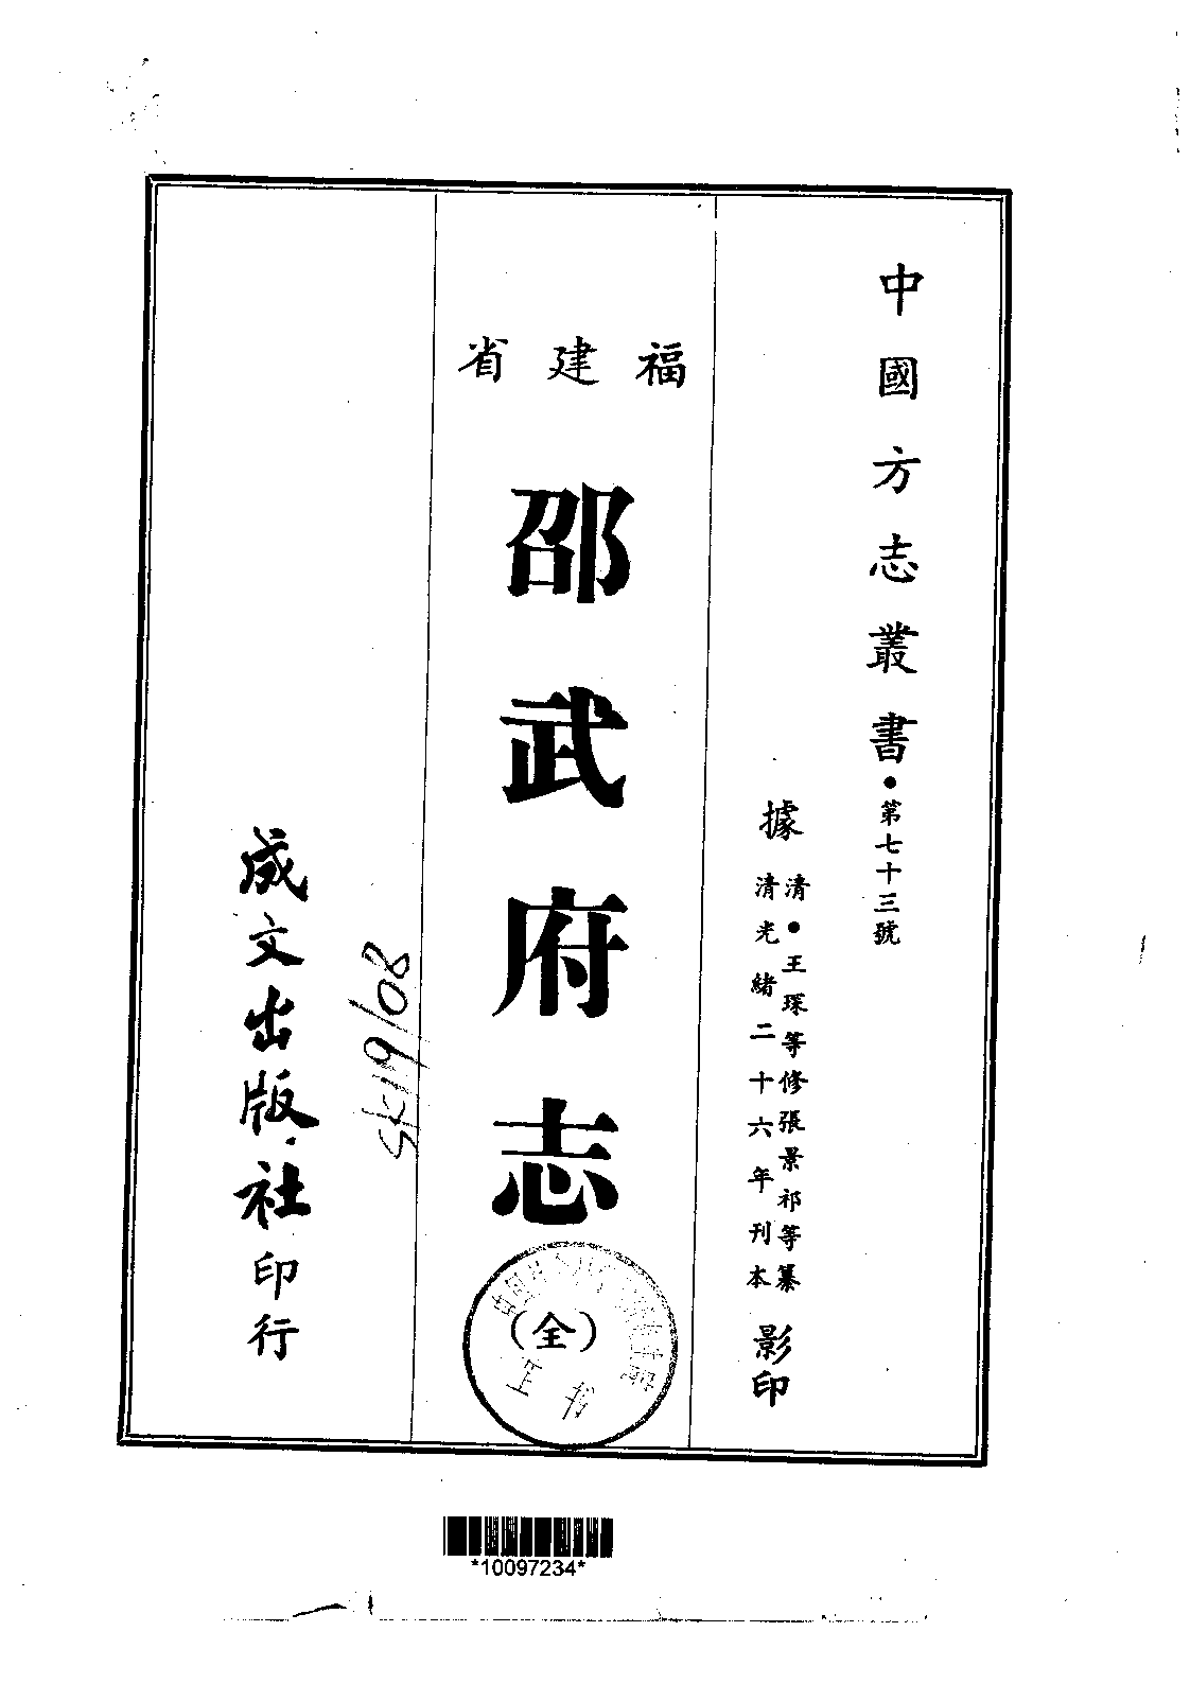 中國方志叢書•第七十三號
據
清•王琛等修張景祁等纂
清光緒二十六年刊本
影印
福建省
邵武府志
(全)
sk19/08
成文出版社印行
*10097234*